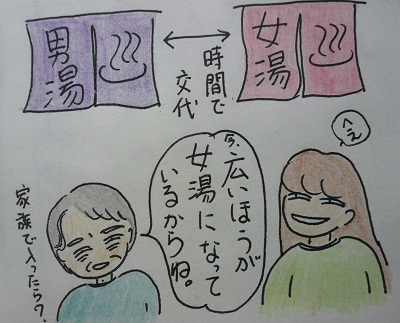 男湯
時間で
交代
女湯
へぇ
今、広いほうが
女湯になって
いるからね。
家族で入ったら?